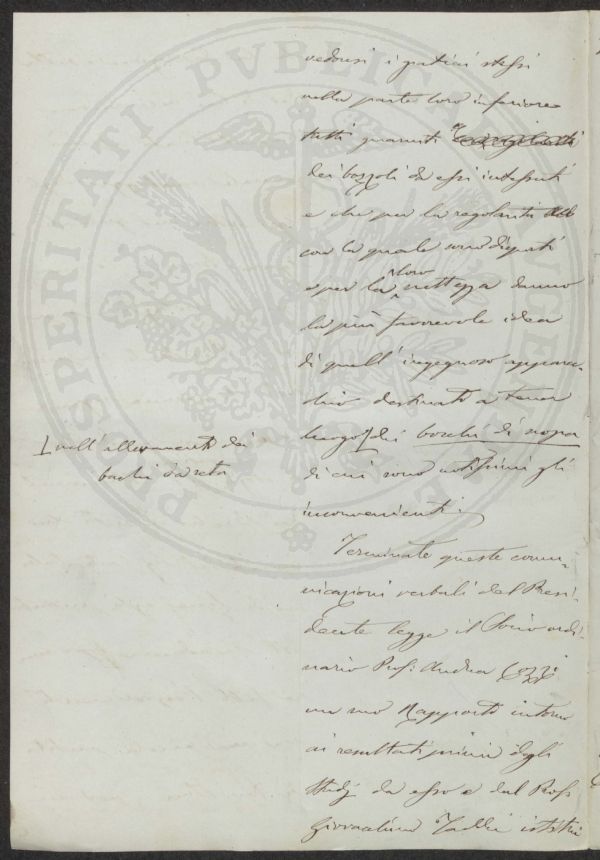 vedonsi i graticci stessi
nella parte loro inferiore
tutti guarniti
dei bozzoli da essi intessuti
e che per la regolarità
con la quale sono disposti
e per la loro nettezza danno
la più favorevole idea
di quell' ingegnoso apparec-
chio destinato a tener
luogo dei boschi di scopa
di cui sono notissimi gli
inconvenienti.
nell' allevamento dei
bachi da seta
Terminate queste comu-
nicazioni verbali del Presi-
dente legge il Socio ordi-
nario Prof. Andrea Cozzi
un suo Rapporto intorno
ai resultati primi degli
Studj da esso e dal Prof.
Giovacchino Taddei istitui
PROSPERITATI PVBLICAE AVGENDAE